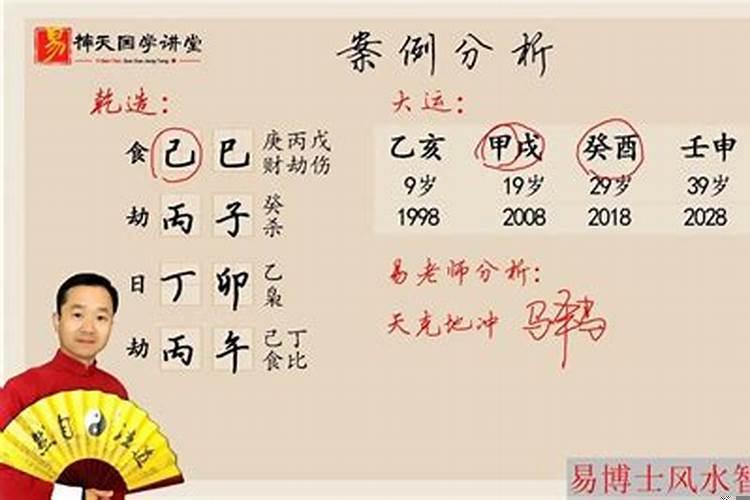 易 博天国学讲堂
案例分析
乾造：
食 己 巳 庚 丙 戊
财 劫 伤
劫 丙 子 癸
杀
日 丁 卯 乙
枭
劫 丙 午 己 丁
食 比
大运：
乙亥 甲戌 癸酉 壬申
9岁 19岁 29岁 39岁
1998 2008 2018 2028
易老师分析：
天克地冲
自
法
易博士风水智